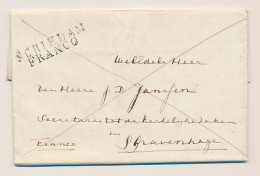 SCHIEDAM
FRANCO
Welldele Heer
Den Heere J D Janssen
Secretaris tot de Kerkelijke zaken
in
Franco
S Gravenhage